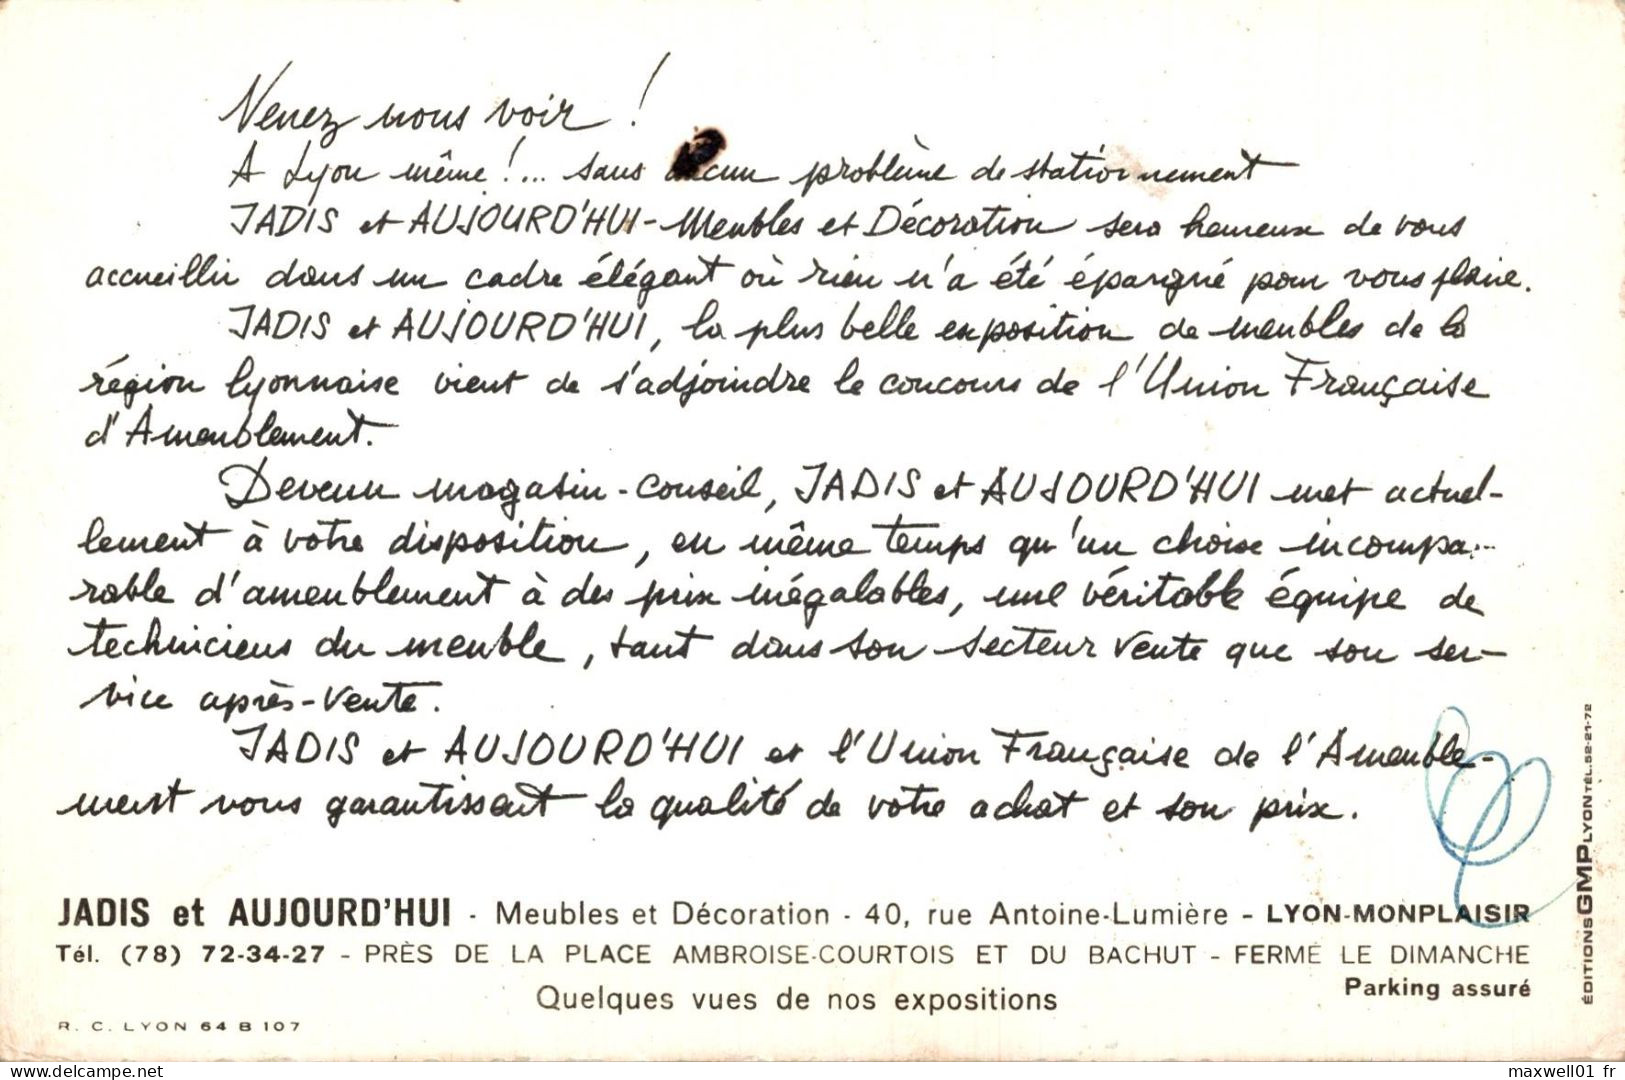 Venez nous voir !
A Lyon même !... sans aucun problème de stationnement
JADIS et AUJOURD'HUI - Meubles et Décoration sera heureux de vous
accueillir dans un cadre élégant où rien n'a été épargné pour vous plaire.
JADIS et AUJOURD'HUI, la plus belle exposition de meubles de la
région lyonnaise vient de s'adjoindre le concours de l'Union Française
d'Ameublement.
Devenu magasin-conseil, JADIS et AUJOURD'HUI met actuel-
lement à votre disposition, en même temps qu'un choix incompa-
rable d'ameublement à des prix inégalables, une véritable équipe de
techniciens du meuble, tant dans son secteur Vente que son ser-
vice après-Vente.
JADIS et AUJOURD'HUI et l'Union Française de l'Ameuble-
ment vous garantissent la qualité de votre achat et son prix.
JADIS et AUJOURD'HUI - Meubles et Décoration - 40, rue Antoine-Lumière - LYON-MONPLAISIR
Tél. (78) 72-34-27 - PRÈS DE LA PLACE AMBROISE-COURTOIS ET DU BACHUT - FERMÉ LE DIMANCHE
Parking assuré
Quelques vues de nos expositions
R. C. LYON 64 B 107
ÉDITIONS GMP LYON TÉL. 52-21-72
delcampe.net
maxwell01 fr